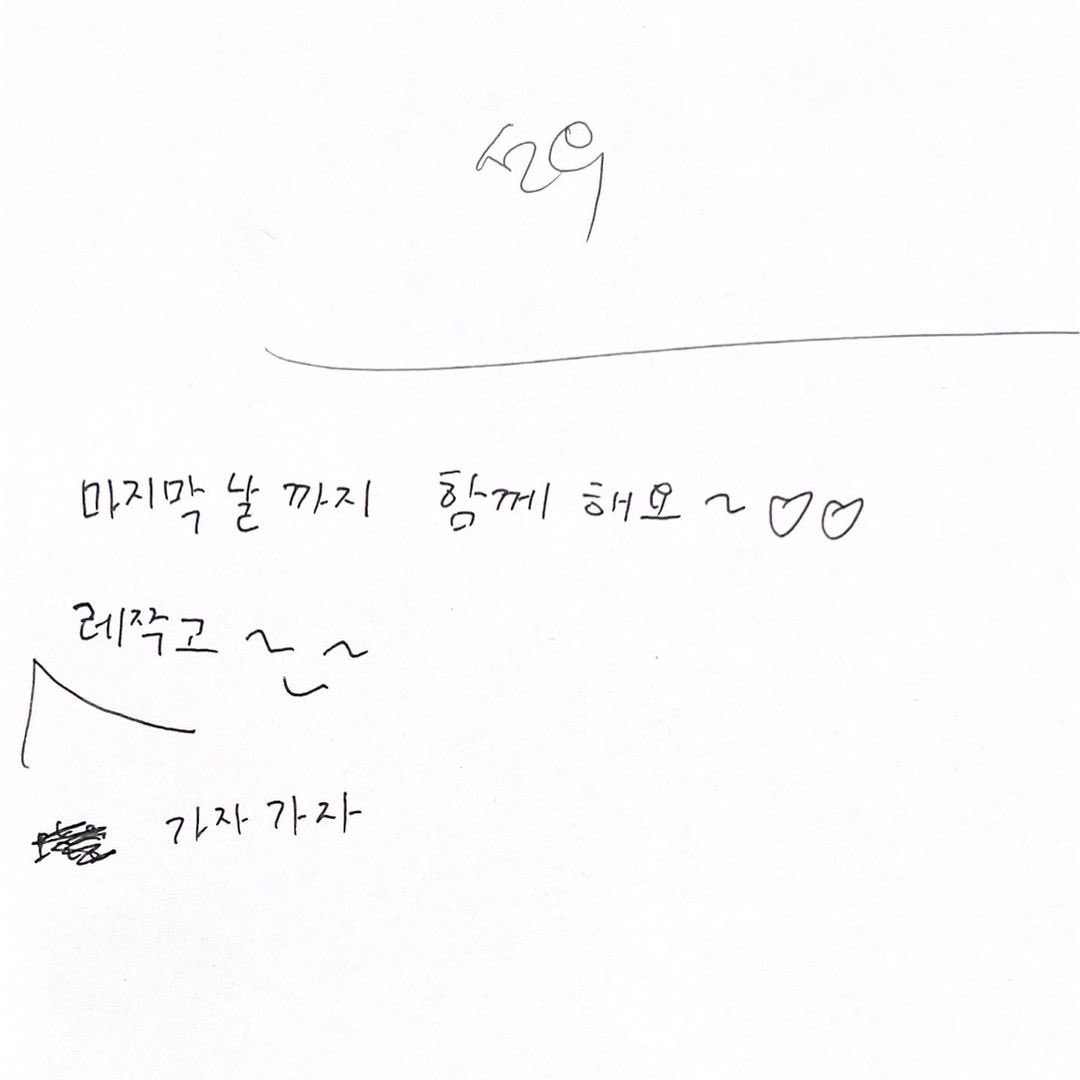 선우
마지막 날 까지 함께 해요 ~ ♡♡
레쭉고 ~ ~
가자 가자